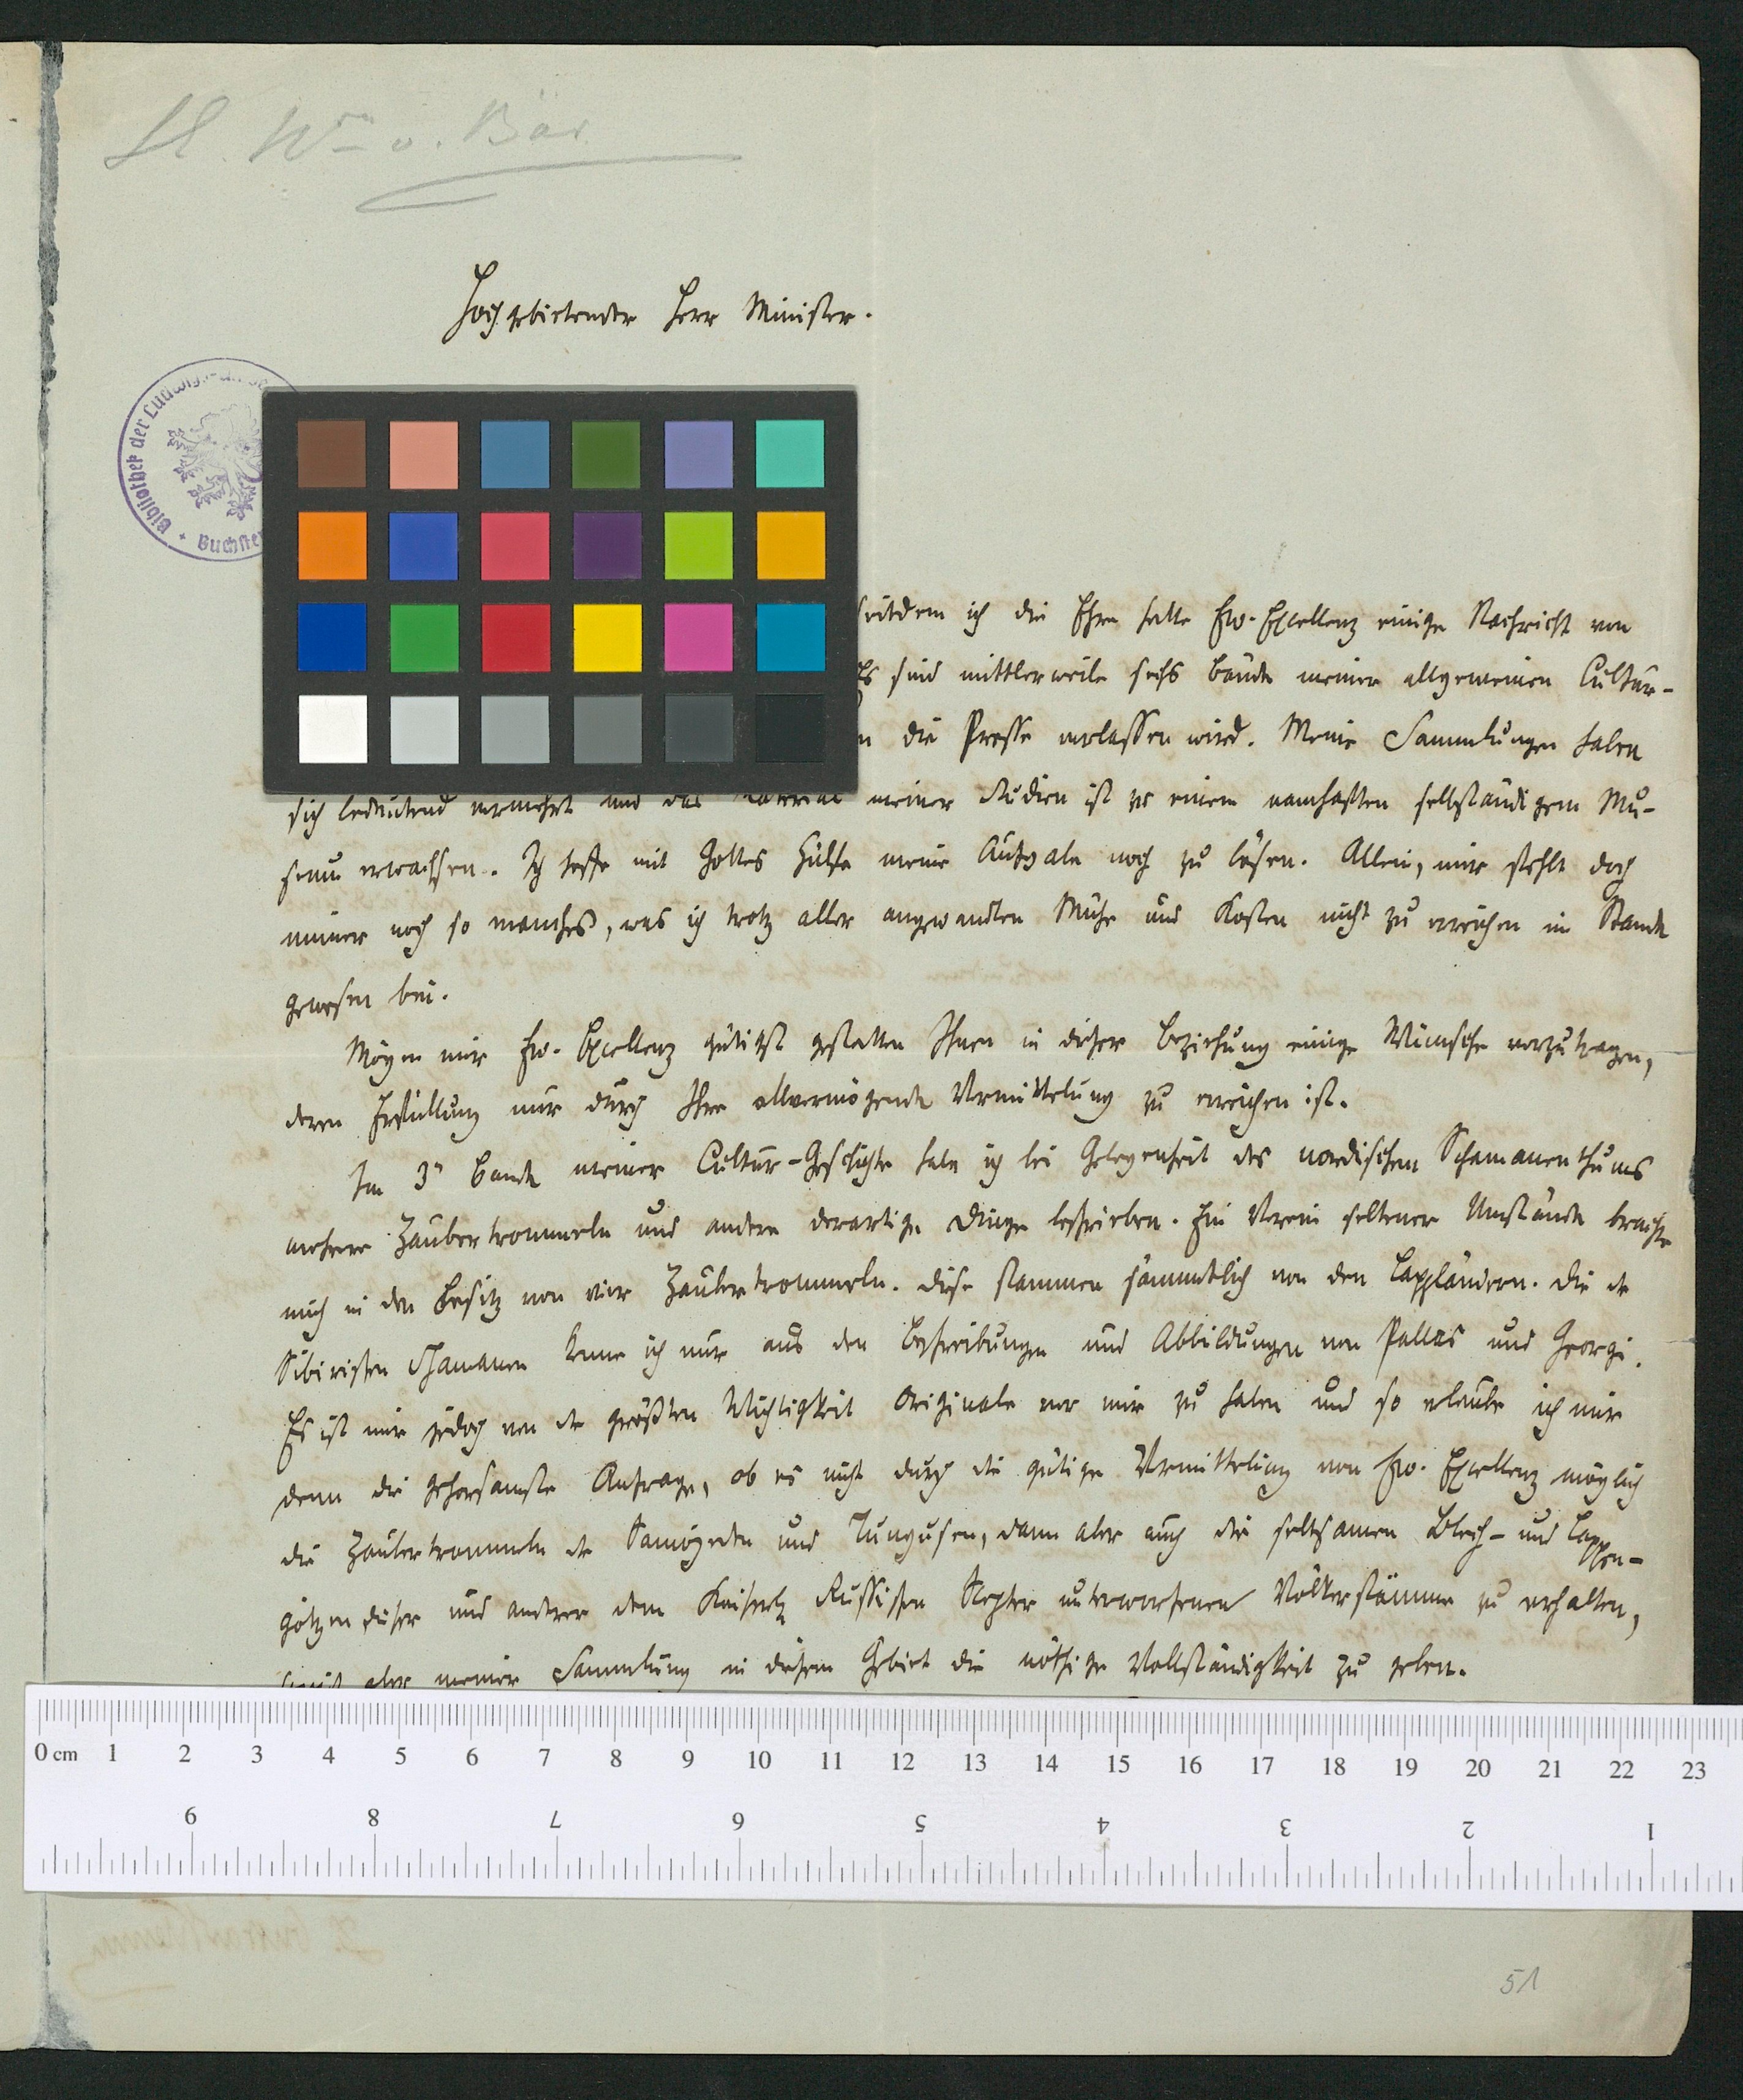 St. Wm v. Bär
Hochgebietender Herr Minister.
Bibliothek der Ludwig
Buchste
seitdem ich die Ehre hatte Ew. Excellenz einige Nachricht von
Es sind mittlerweile sechs Bände meiner allgemeinen Cultur-
n die Presse verlassen wird. Meine Sammlungen haben
sich bedeutend vermehrt und das Material meiner Studien ist zu einem namhaften selbständigem Mu-
seum erwachsen. Ich hoffe mit Gottes Hülfe meine Aufgabe noch zu lösen. Allein, mir fehlt doch
immer noch so manches, was ich trotz aller angewandten Mühe und Kosten nicht zu erreichen im Stande
gewesen bin.
Mögen mir Ew. Excellenz gütigst gestatten Ihnen in dieser Beziehung einige Wünsche vorzutragen,
deren Erfüllung nur durch Ihre allvermögende Vermittelung zu erreichen ist.
Im 3n Bande meiner Cultur-Geschichte habe ich bei Gelegenheit des nordischen Schamanenthums
mehrere Zaubertrommeln und andere derartige Dinge beschrieben. Ein Verein seltener Umstände brachte
mich in den Besitz von vier Zaubertrommeln. Diese stammen sämmtlich von den Lappländern. Die der
Sibirischen Schamanen kenne ich nur aus den Beschreibungen und Abbildungen von Pallas und Georgi.
Es ist mir jedoch von der größten Wichtigkeit Originale vor mir zu haben und so erlaube ich mir
denn die gehorsamste Anfrage, ob es nicht durch die gütige Vermittelung von Ew. Excellenz möglich
die Zaubertrommeln der Samojeden und Tungusen, dann aber auch die seltsamen Blech- und Lappen-
götzen dieser und anderer dem Kaiserlich Russischen Scepter unterworfenen Völkerstämme zu erhalten,
somit aber meiner Sammlung in diesem Gebiet die nöthige Vollständigkeit zu geben.
0 cm 1 2 3 4 5 6 7 8 9 10 11 12 13 14 15 16 17 18 19 20 21 22 23
9 8 7 6 5 4 3 2 1
51